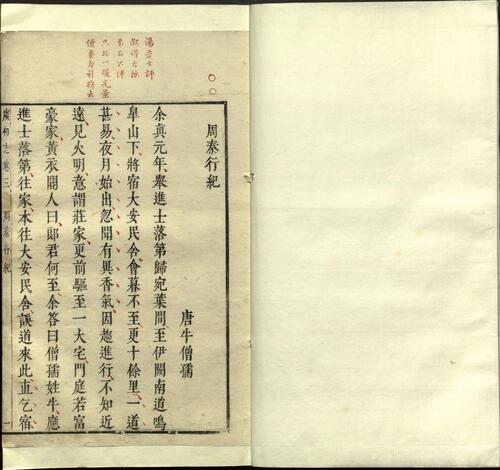 湯若士評
周秦行紀
唐牛僧孺
余真元年舉進士落第歸宛葉間至伊闕南道鳴
皐山下將宿大安民舍會暮不至更十餘里一道
甚易夜月始出忽聞有異香氣因趨進行不知近
遠見火明意謂莊家更前驅至一大宅門庭若富
豪家黃衣閽人曰郎君何至余答曰僧孺姓牛應
進士落第往家本往大安民舍誤道來此直乞宿
虞初志卷三 周秦行紀 一